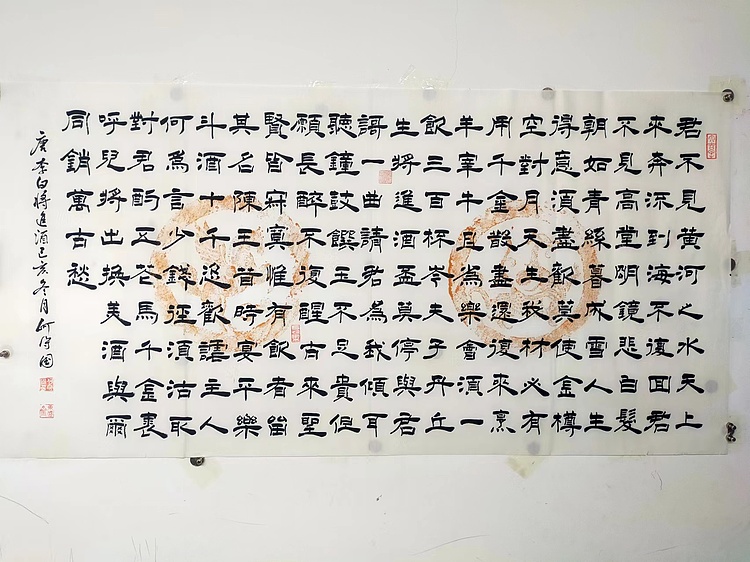 君不見黃河之水天上
來奔流到海不復回君
不見高堂明鏡悲白髮
朝如青絲暮成雪人生
得意須盡歡莫使金樽
空對月天生我材必有
用千金散盡還復來烹
羊宰牛且為樂會須一
飲三百杯岑夫子丹丘
生將進酒盃莫停與君
謌一曲請君為我傾耳
聽鐘鼓饌玉不足貴但
願長醉不復醒古來聖
賢皆寂寞惟有飲者留
其名陳王昔時宴平樂
斗酒十千恣歡謔主人
何為言少錢徑須沽取
對君酌五花馬千金裘
呼兒將出換美酒與爾
同銷萬古愁
唐李白將進酒己亥冬月何守國